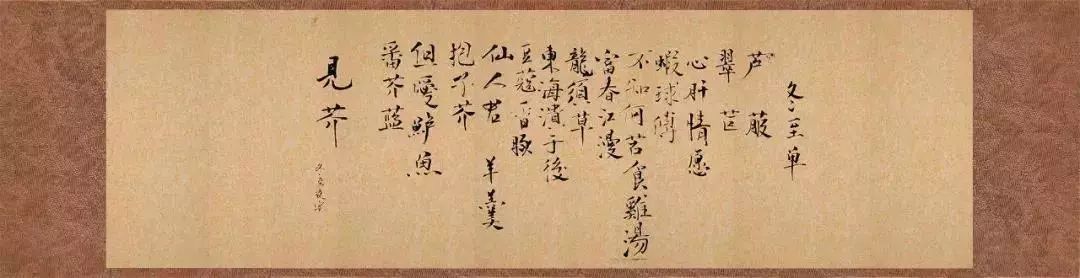 冬至草
芦菔
翠苣
心肝情愿
蝦球傳
不知何苔食雞湯
富春江漫
龍須草
東海濱于後
豆蔻香豚
仙人君 羊羹
抱子芥
但愛鲈魚
番芥蓝
見芥